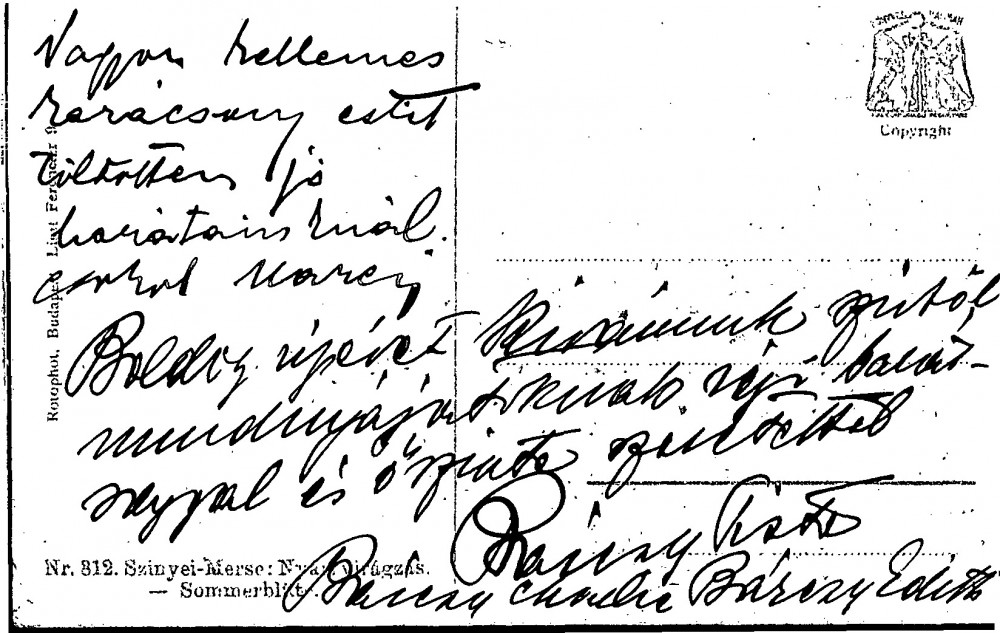 Nagyon kellemes
karácsony estét
töltöttem jó
barátainknál.
csókol
Boldog újévet kívánunk szívből
mindnyájatoknak régi barát-
sággal és őszinte szeretettel
Bárczy Pista
Bárczy Bárczy Edith
Copyright
Rotophot, Budapest, Liszt Ferenc-tér 9.
Nr. 312. Szinyei-Merse: Nyári virágzás.
— Sommerblüte.